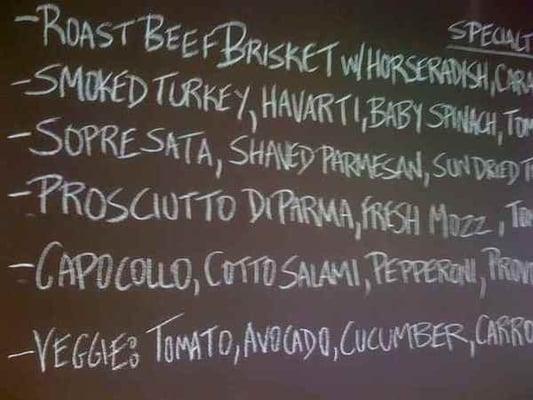 SPECIALT
-ROAST BEEF BRISKET W/HORSERADISH, CARA
-SMOKED TURKEY, HAVARTI, BABY SPINACH, TOM
-SOPRESATA, SHAVED PARMESAN, SUN DRIED T
-PROSCIUTTO DI PARMA, FRESH MOZZ, TOM
-CAPOCOLLO, COTTO SALAMI, PEPPERONI, PROV
-VEGGIE: TOMATO, AVOCADO, CUCUMBER, CARRO